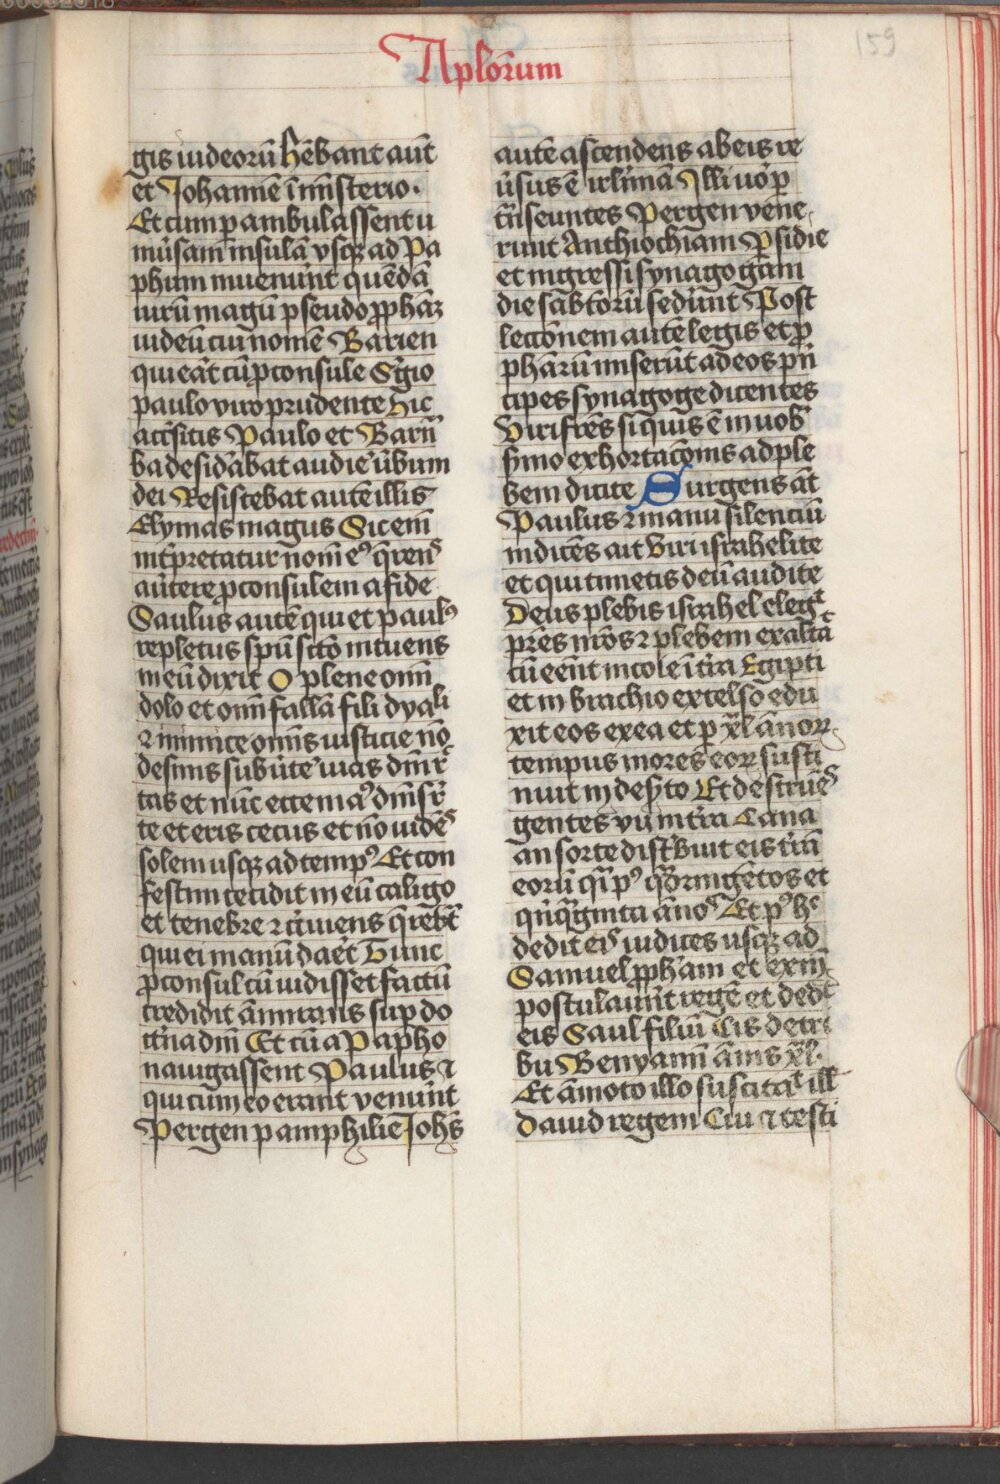 Aplōrum
159
gis iudeorū Hēbant aūt
et Johannē ī mīsterio.
Et cum pambulassent u
niūsam insulā vsqꝫ ad Pa
phum inuenīunt quēdā
uirū magū pseudo ꝓphāꝫ
iudeū cui nomē Barieu
qui eāt cū ꝓconsule S'gio
paulo viro prudente Hic
acc̄sitis Paulo et Barn̄
ba desid̄abat audie' ūbum
dei Resistebat autē illis
Elymas magus Sic em̄
int̄pretatur nom̄ eꝰ q̄rens
aūtere ꝓconsulem a fide
Saulus autē qui et paulꝰ
repletus spū scō intuens
in eū dixit O plene om̄i
dolo et om̄i fallā fili dyali
⁊ inimice om̄is iusticie nō
desinis subūte' uias dn̄i r̄
tas et nūc ecce maꝰ dn̄i sr̄
te et eris cecus et nō uidēs
solem usqꝫ ad tempꝰ Et con
festim cecidit in eū caligo
et tenebre ⁊ c̄iuiens q̄rebt̄
qui ei manū daēt Tunc
ꝓconsul cū uidisset factū
credidit āmirans sup do
ct̄ina dn̄i Et cū a Papho
nauigassent Paulus ⁊
qui cum eo erant venīunt
Pergen pamphilie Johs̄
autē ascendens ab eis re
ūsus ē irl̄imā Illi uō p
tn̄seuntes Pergen vene
runt Anthiochiam Psidie
et ingressi synagogam
die sabtorū sed̄unt Post
lecc̄onem autē legis et ꝓ
phārū miserūt ad eos p̄n
cipes synagoge dicentes
Viri fr̄es si quis ē in uob̄
s̄mo exhortac̄onis ad ple
bem dicite Surgens at̄
Paulus ⁊ manu silenciū
indicēs ait Viri israhelite
et qui timetis deū audite
Deus plebis israhel elegt
pr̄es nr̄os ⁊ plebem exaltat
cū eēnt incole ī t̄ra Egipti
et in brachio excelso edu
xit eos ex ea et p xl ānoꝝ
tempus mores eoꝝ susti
nuit in des̄to Et destruēs
gentes vii in t̄ra Cana
an sorte distbuit eis t̄rā
eorū q̄i pꝰ q̄dringētos et
qn̄q̄ginta ānos Et pꝰ hec
dedit eis iudices usqꝫ ad
Samuel ꝓpham et exin̄
postulaūnt regē et dedt
eis Saul filiū Cis de tri
bu Benyamī ānis xl.
Et āmoto illo suscitat ill
dauid regem Cui ⁊ testi